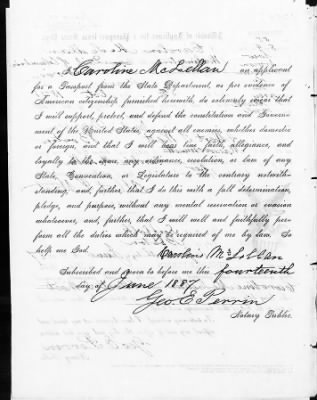 I Caroline McLellan an applicant
for a Passport from the State Department, as per evidence of
American citizenship furnished herewith, do solemnly swear that
I will support, protect, and defend the constitution and Govern-
ment of the United States, against all enemies, whether domestic
or foreign, and that I will bear true faith, allegiance, and
loyalty to the same, any ordinance, resolution, or law of any
State, Convention, or Legislature to the contrary notwith-
standing, and, further, that I do this with a full determination,
pledge, and purpose, without any mental reservation or evasion
whatsoever, and, further, that I will well and faithfully per-
form all the duties which may be required of me by law. So
help me God.
Caroline McLellan
Subscribed and sworn to before me this fourteenth
day of June 1887
Geo. E. Perrin
Notary Public.